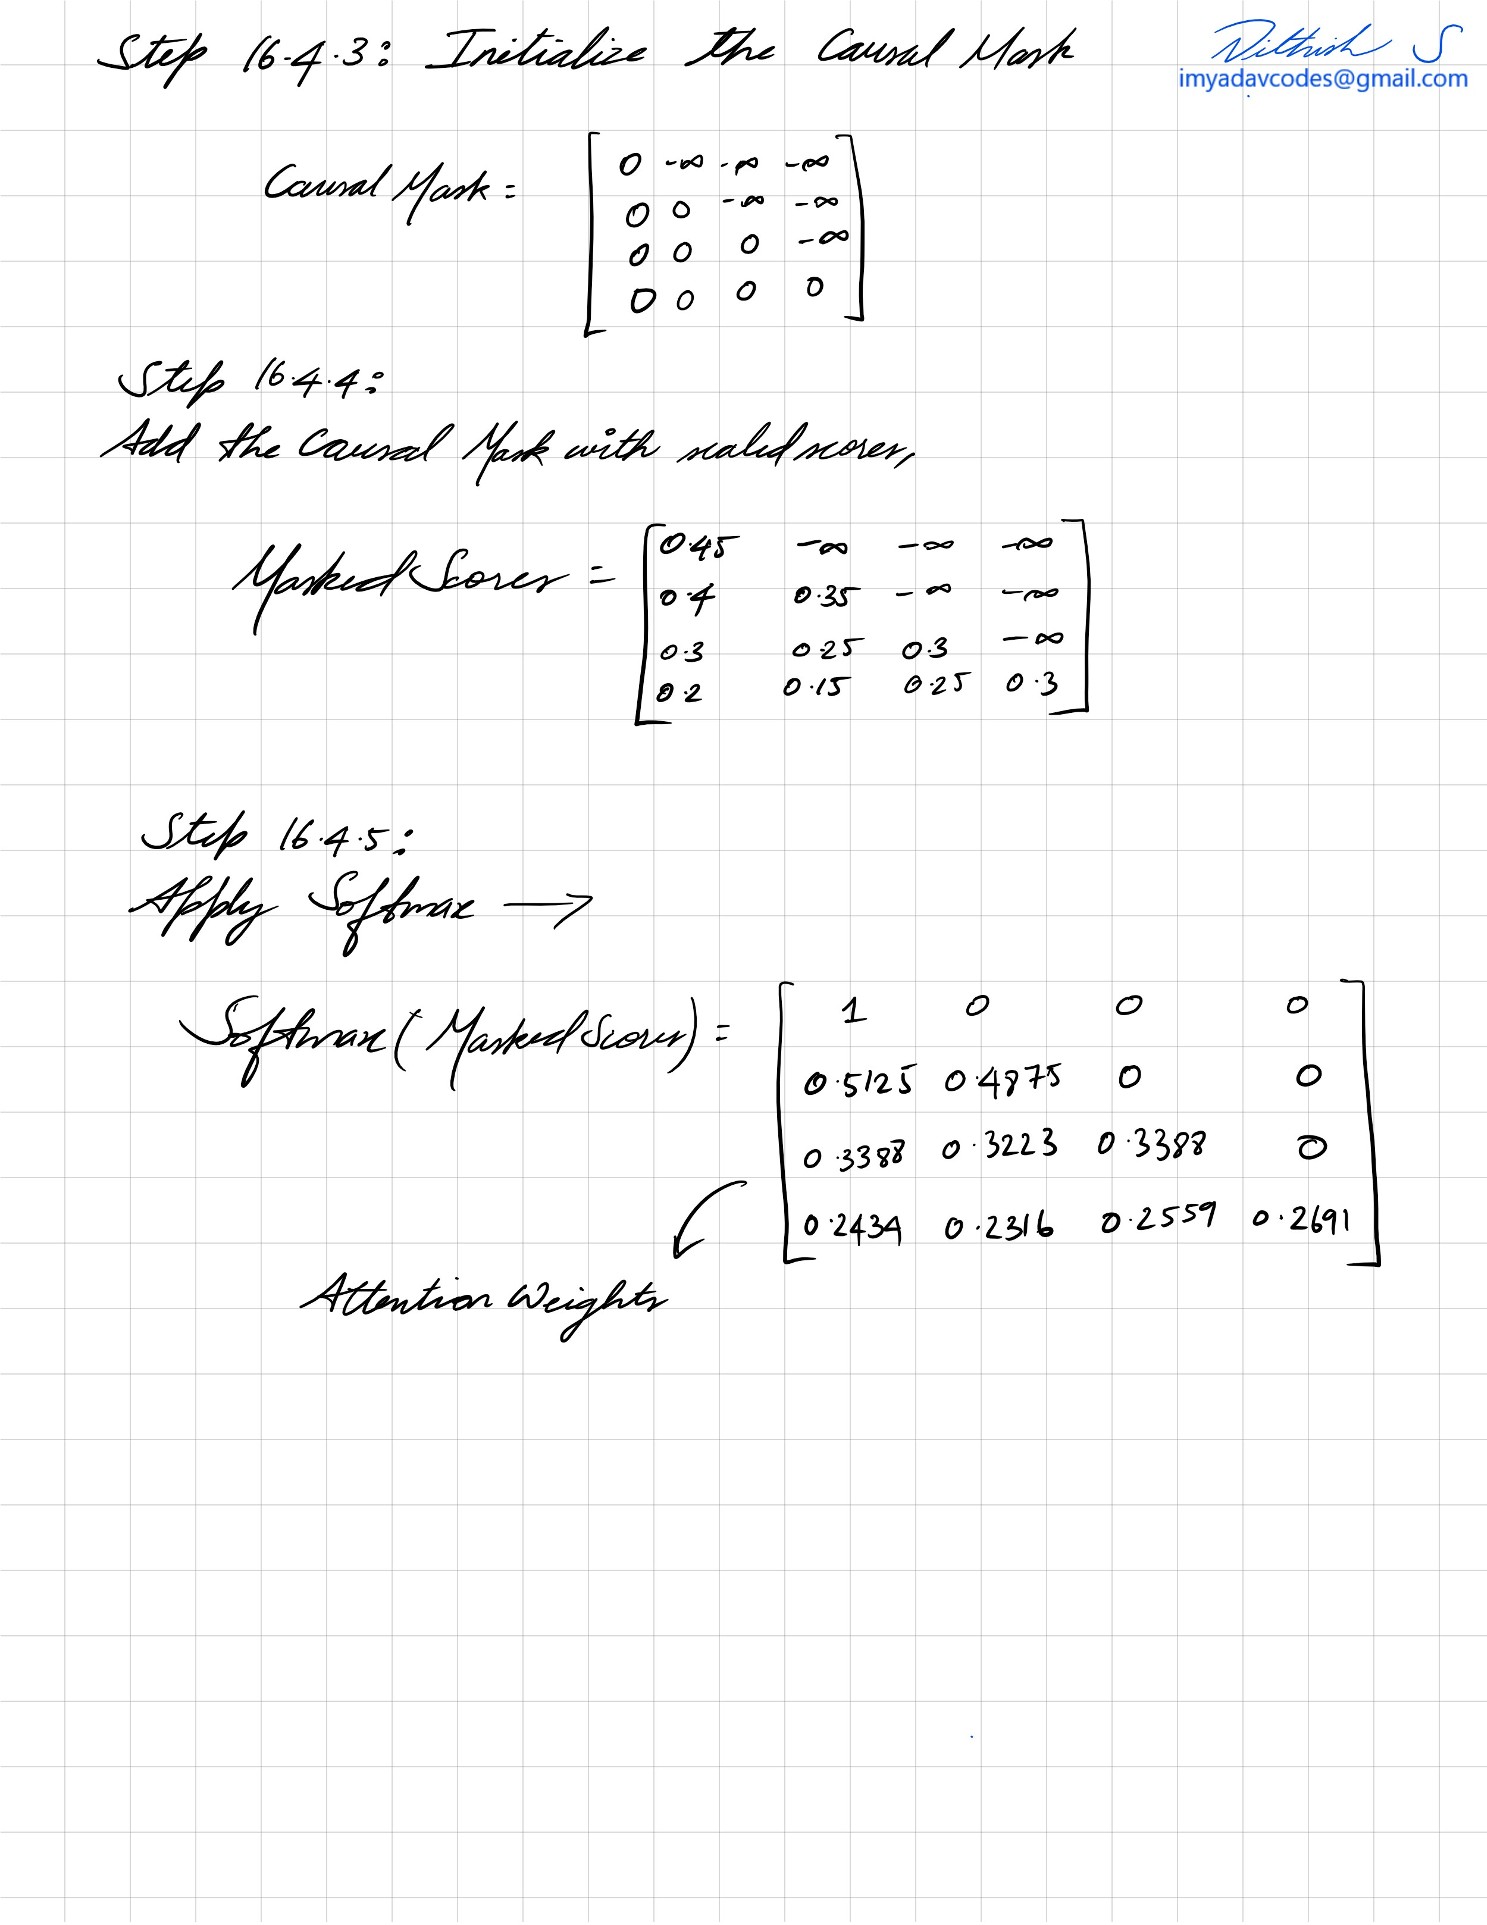 Step 16.4.3: Initialize the Causal Mask
Dithish S
imyadavcodes@gmail.com
Causal Mask =
0 -∞ -∞ -∞
0 0 -∞ -∞
0 0 0 -∞
0 0 0 0
Step 16.4.4:
Add the Causal Mask with scaled scores,
Masked Scores =
0.45 -∞ -∞ -∞
0.4 0.35 -∞ -∞
0.3 0.25 0.3 -∞
0.2 0.15 0.25 0.3
Step 16.4.5:
Apply Softmax →
Softmax(Masked Scores) =
1 0 0 0
0.5125 0.4875 0 0
0.3388 0.3223 0.3388 0
0.2434 0.2316 0.2559 0.2691
Attention Weights